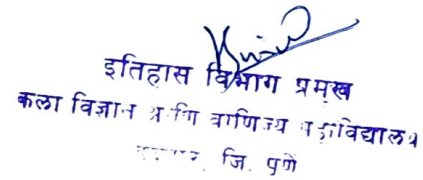 इतिहास विभाग प्रमुख
कला विज्ञान आणि वाणिज्य महाविद्यालय
जि. पुणे